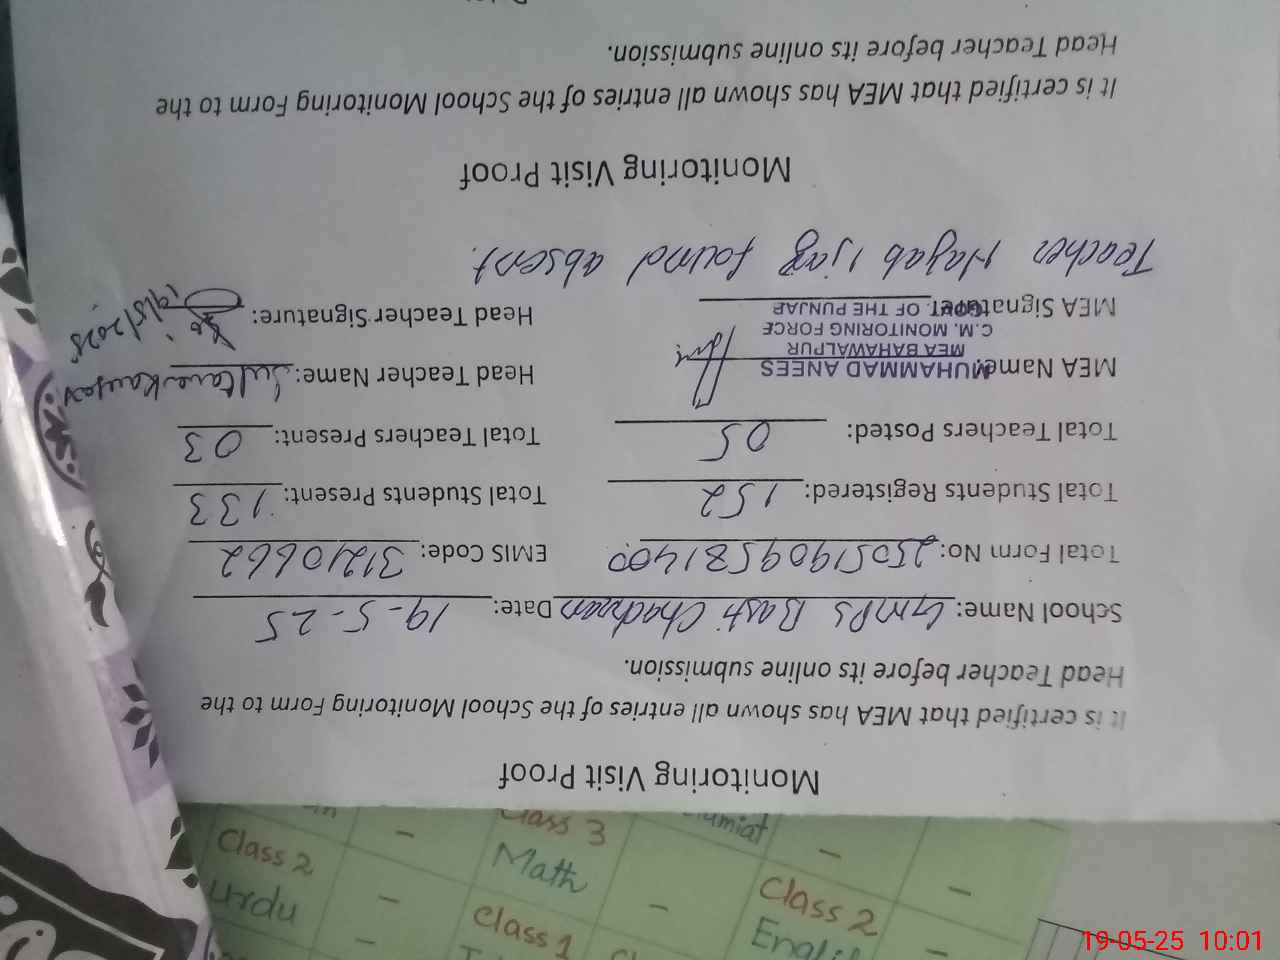 Monitoring Visit Proof
It is certified that MEA has shown all entries of the School Monitoring Form to the
Head Teacher before its online submission.
School Name: GMPS Basti Chachran Date: 19-5-25
Total Form No: 25051909581400 EMIS Code: 31210662
Total Students Registered: 152 Total Students Present: 133
Total Teachers Posted: 05 Total Teachers Present: 03
MEA Name: Head Teacher Name: Sultana Kausar
MUHAMMAD ANEES
MEA BAHAWALPUR
C.M. MONITORING FORCE
GOVT. OF THE PUNJAB
MEA Signature: Head Teacher Signature:
19/5/2025
Teacher Hayab Ijaz found absent.
Monitoring Visit Proof
It is certified that MEA has shown all entries of the School Monitoring Form to the
Head Teacher before its online submission.
Class 3
Class 2 Math Class 2
Urdu Class 1 Englis
19-05-25 10:01